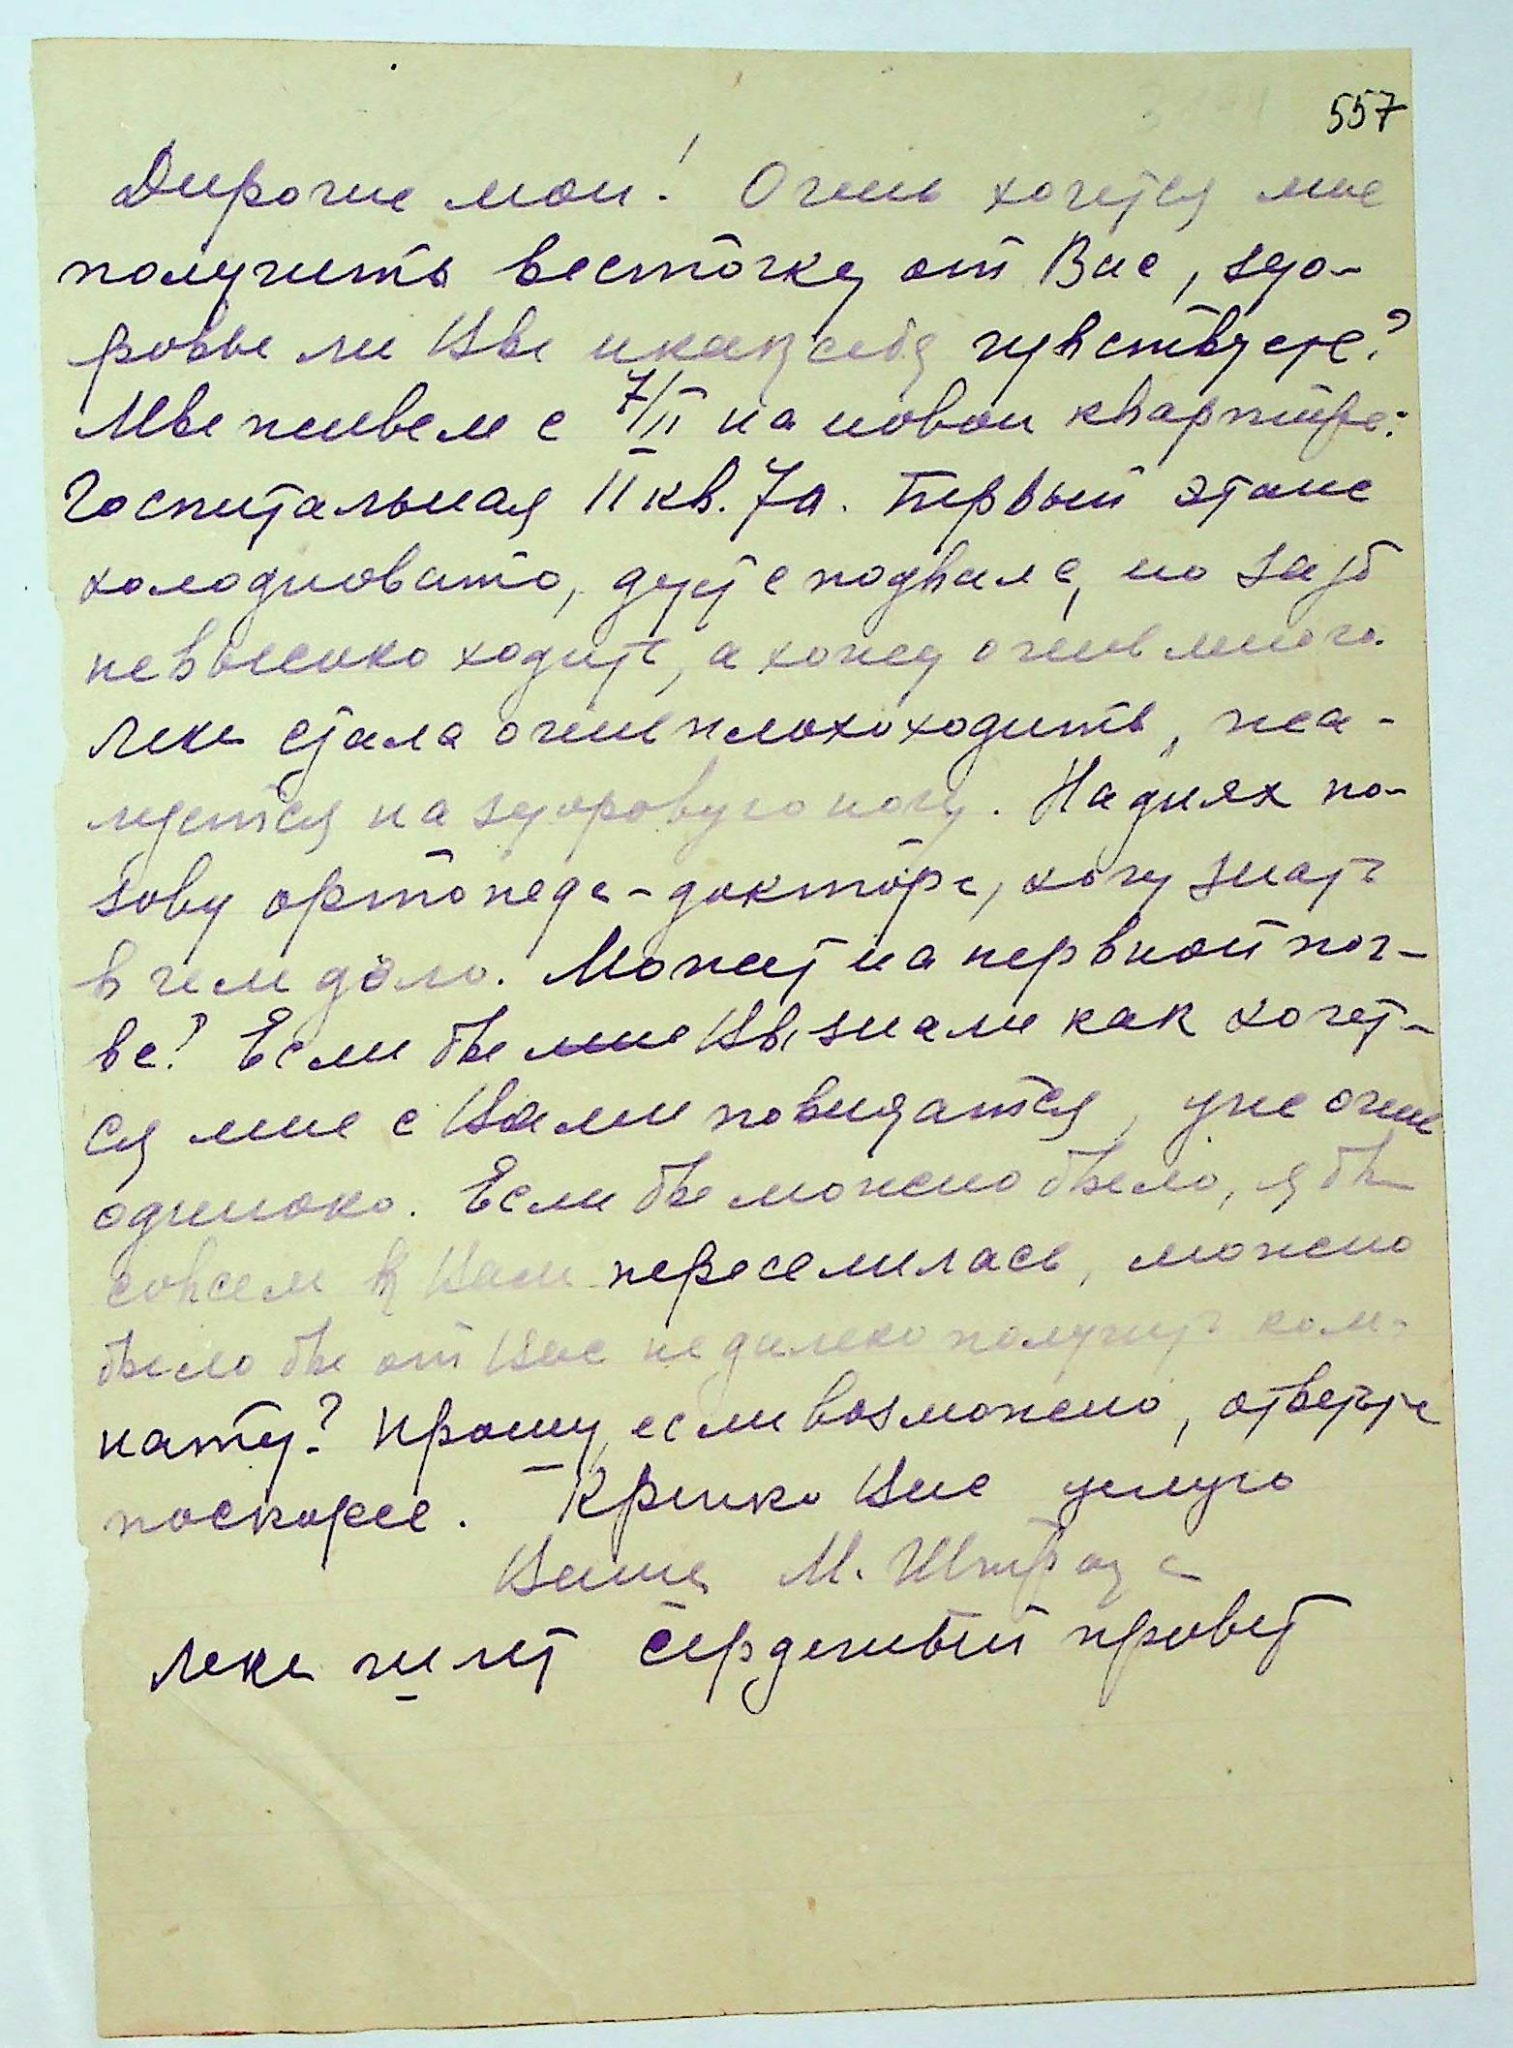 557
Дорогие мои! Очень хочется мне
получить весточку от Вас, здо-
ровы ли Вы и как себя чувствуете?
Мы живем с 7/II на новой квартире:
Госпитальная 11 кв. 7а. Первый этаж
холодновато, дует с подвала, но зато
невысоко ходить, а хожу очень много.
Лека стала очень плохо ходить, жа-
луется на здоровую ногу. На днях по-
зову ортопеда-доктора, хочу знать
в чем дело. Может на нервной поч-
ве? Если бы мне Вы знали как хочет-
ся мне с Вами повидатся, уже очень
одиноко. Если бы можно было, я бы
совсем к Вам переселилась, можно
было бы от Вас недалеко получить ком-
нату? Прошу, если возможно, ответьте
поскорее. Крепко Вас целую
Ваша М. Штрауз
Лека шлет сердечный привет